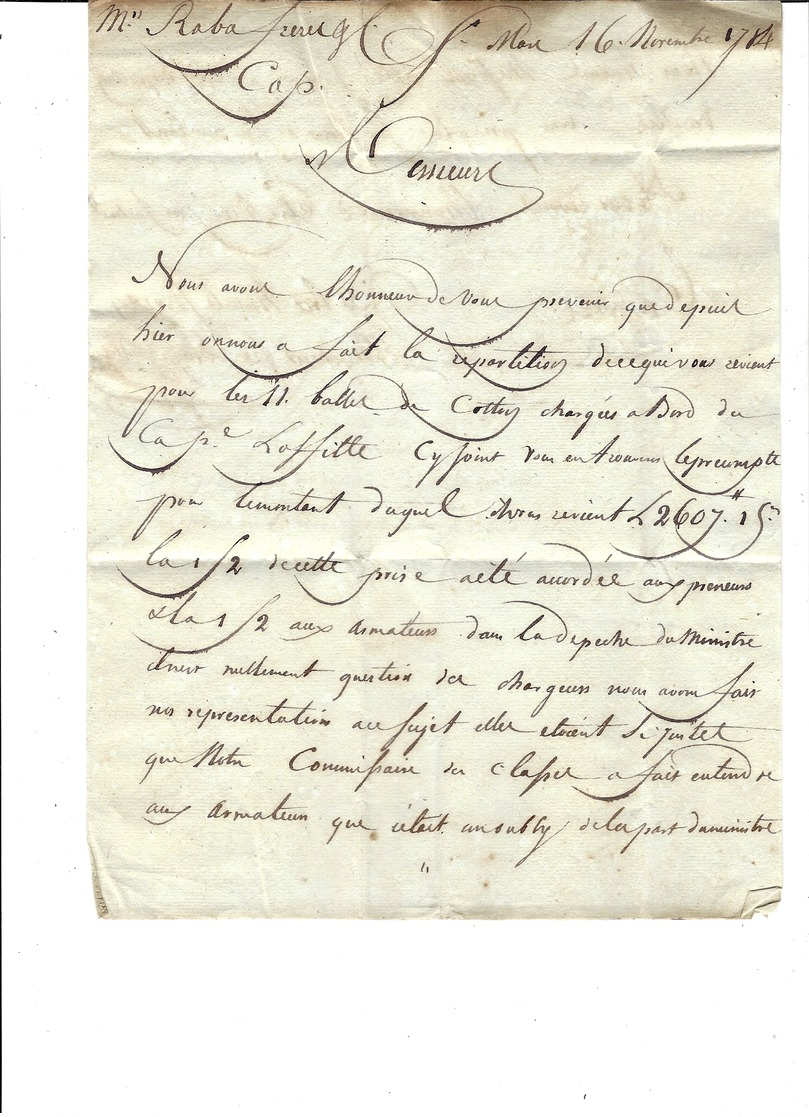 Mrs Raba freres & C. St. Marc 16. Novembre 1784
Cap.
Messieurs
Nous avons lhonneur de vous prevenir que depuis
hier on nous a fait la repartition de ce qui vous revient
pour les 11. balles de Cotton chargées a Bord du
Cape. Laffitte Cy joint vous en trouverez le
pour le montant duquel il vous revient L 2607.# 15s
la 1/2 de cette prise a eté accordée aux preneurs
& la 1/2 aux armateurs dans la depeche du Ministre
il nest nullement question des chargeurs nous avons fait
nos representation au sujet elles etoient Si justes
que Notre Commissaire des Classes a fait entendre
aux armateurs que cétoit un oubly de la part du ministre
"